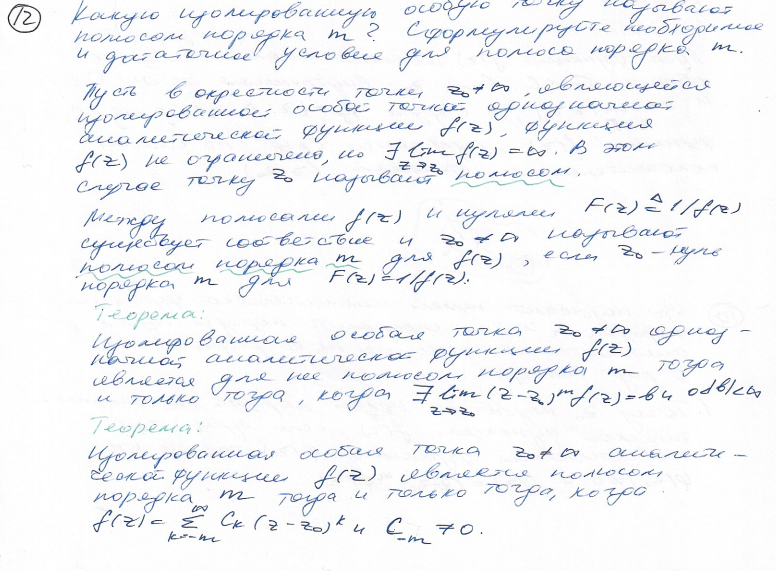 12 Какую изолированную особую точку называют
полюсом порядка m? Сформулируйте необходимое
и достаточное условие для полюса порядка m.
Пусть в окрестности точки z₀≠∞, являющейся
изолированной особой точкой однозначной
аналитической функции f(z), функция
f(z) не ограничена, но ∃ lim f(z) = ∞. В этом
z→z₀
случае точку z₀ называют полюсом.
Между полюсами f(z) и нулями F(z) ≜ 1/f(z)
существует соответствие и z₀≠∞ называют
полюсом порядка m для f(z), если z₀ - нуль
порядка m для F(z)=1/f(z).
Теорема:
Изолированная особая точка z₀≠∞ одноз-
начной аналитической функции f(z)
является для нее полюсом порядка m тогда
и только тогда, когда ∃ lim (z-z₀)ᵐ f(z) = b и 0<|b|<∞
z→z₀
Теорема:
Изолированная особая точка z₀≠∞ аналити-
ческой функции f(z) является полюсом
порядка m тогда и только тогда, когда
f(z) = ∞∑k=-m Cₖ (z-z₀)ᵏ и C₋ₘ ≠ 0.